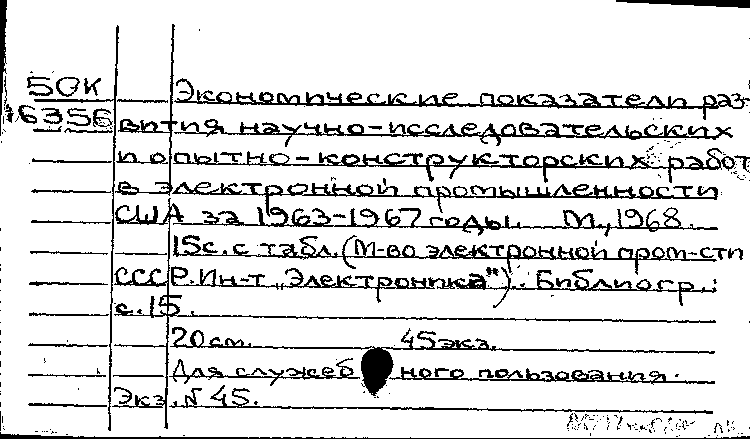 50К Экономические показатели раз-
16356 вития научно-исследовательских
и опытно-конструкторских работ
в электронной промышленности
США за 1963-1967 годы. М., 1968.
15с. с табл. (М-во электронной пром-сти
СССР. Ин-т „Электроника"). Библиогр.:
с. 15.
20см. 45экз.
Для служебного пользования.
Экз. № 45.